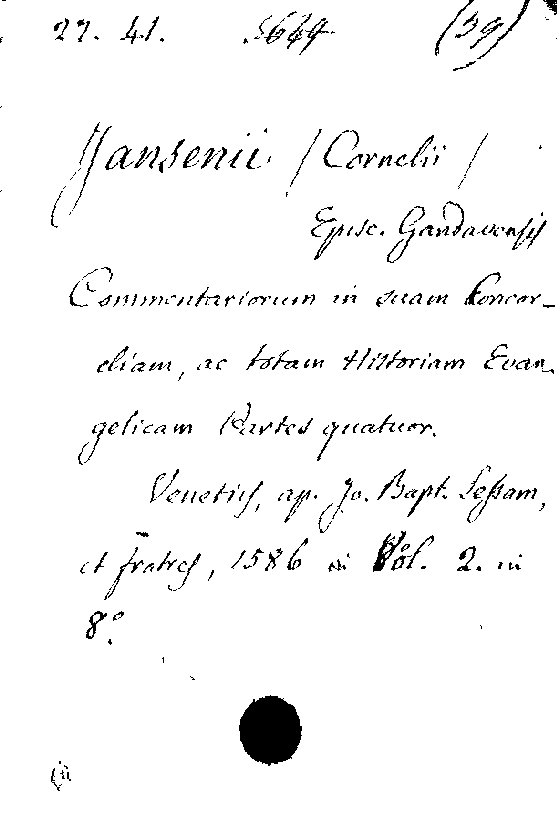 27. 41. 5644 (39)
Jansenii / Cornelii /
Episc. Gandavensis
Commentariorum in suam Concor-
diam, ac totam Historiam Evan-
gelicam Partes quatuor.
Venetiis, ap. Jo. Bapt. Sessam,
et fratres, 1586 in Vol. 2. in
8°.